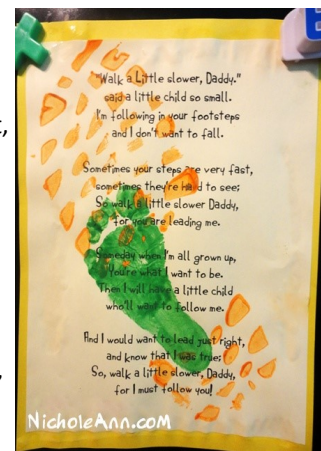 "Walk a Little slower, Daddy."
said a little child so small.
I'm following in your footsteps
and I don't want to fall.
Sometimes your steps are very fast,
sometimes they're hard to see;
So walk a little slower Daddy,
for you are leading me.
Someday when I'm all grown up,
You're what I want to be.
Then I will have a little child
who'll want to follow me.
And I would want to lead just right,
and know that I was true;
So, walk a little slower, Daddy,
for I must follow you!
NicholeAnn.com